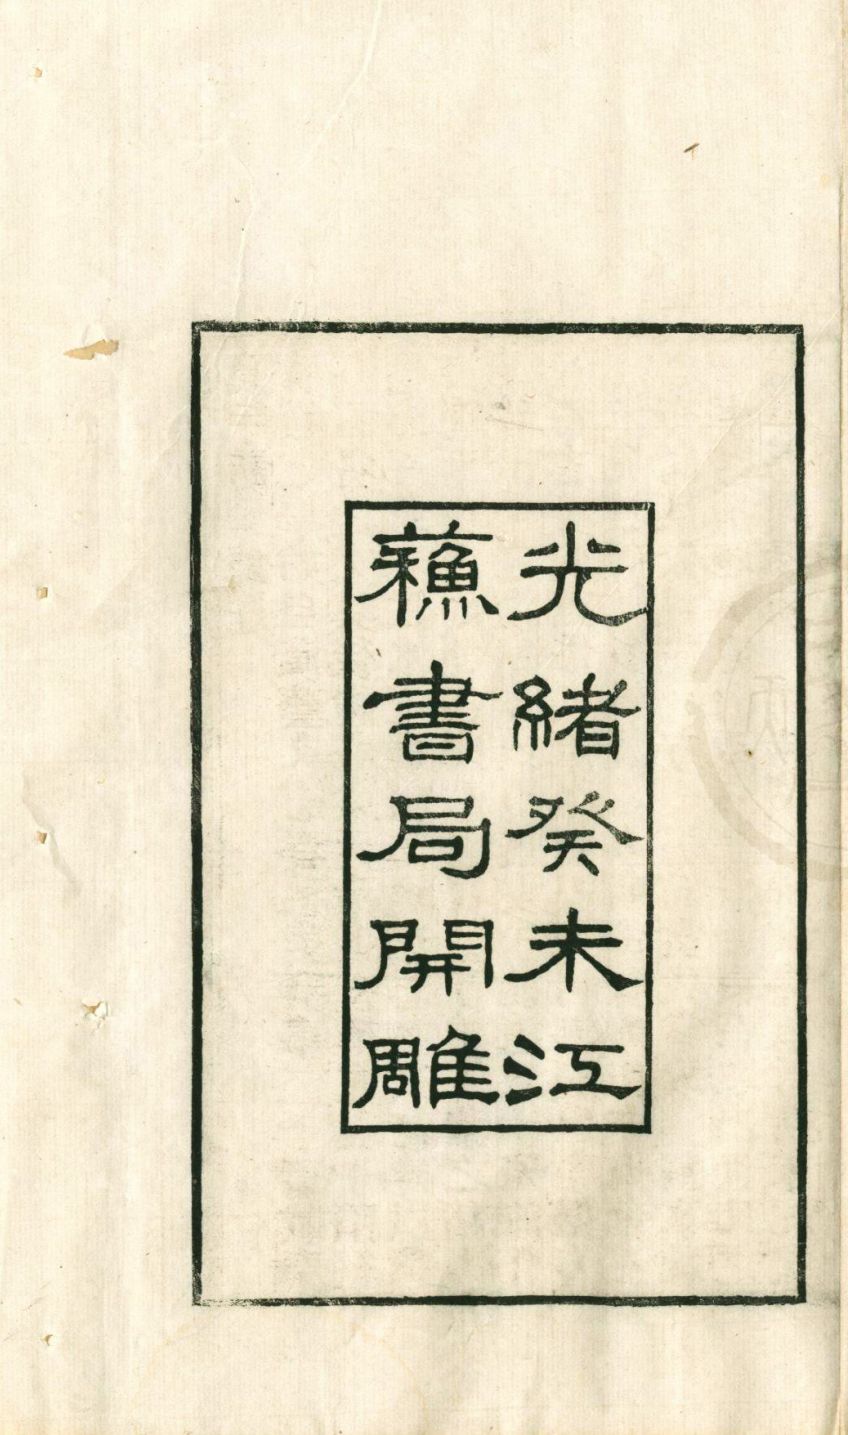 光緒癸未江
蘓書局開雕